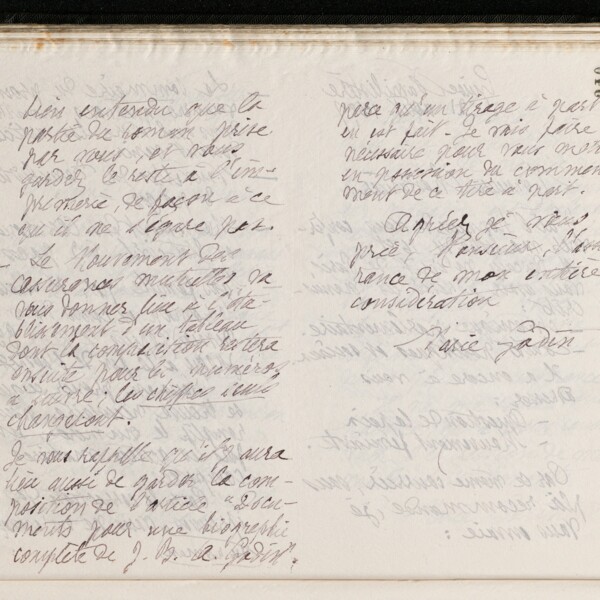 bien entendu que la
partie du roman prise
par vous et vous
garder le reste à l'im-
primerie, de façon à ce
qu'il ne s'égare pas.
- Le Mouvement des
assurances mutuelles va
vous donner lieu à l'éta-
blissement d'un tableau
dont la composition restera
ensuite pour les numéros
à suivre; les chiffres seuls
changeront.
Je vous rappelle qu'il y aura
lieu aussi de garder la com-
position de l'article "Docu-
ments pour une biographie
complète de J. B. A. Godin".
pera qu'un tirage à part
en est fait. Je vais faire
nécessaire pour vous
en possession du commen
ment de ce tiré à part.
Agréez, je vous
prie, Monsieur, l'assu
rance de mon entière
considération
Marie Godin